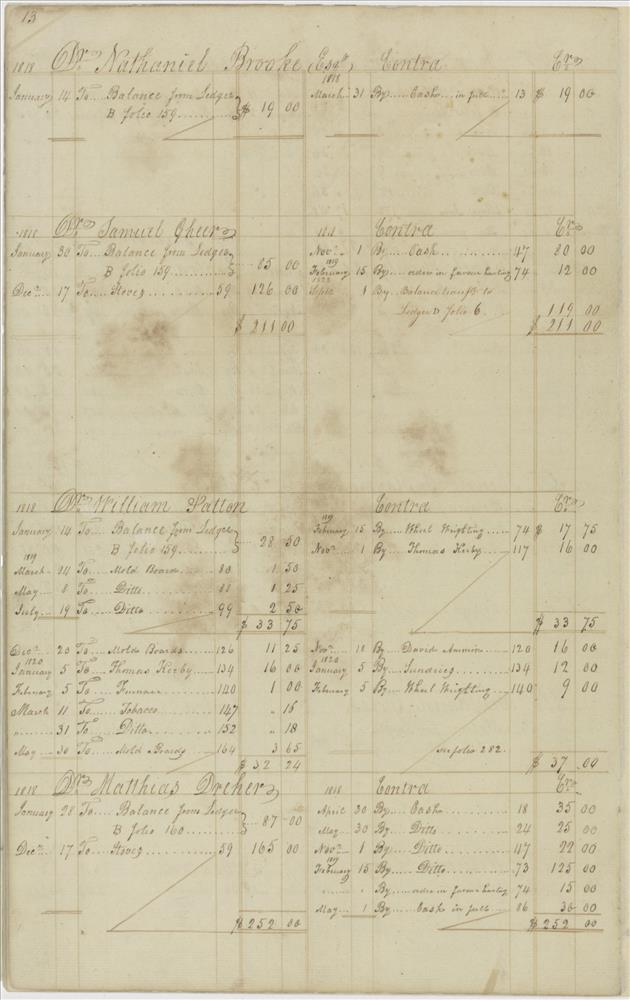 13
1818 Dr. Nathaniel Brooke Esqr. Contra Cr.
January 14 To Balance from Ledger
B folio 159 $ 19 00
1818
March 31 By Cash in full 13 $ 19 00
1818 Dr. Samuel Gheer 1818 Contra Cr.
January 30 To Balance from Ledger
B folio 159 85 00
Decr. 17 To Stoves 59 126 00
$ 211 00
Novr. 1 By Cash 47 80 00
1819
February 15 By order in favour 74 12 00
1823
Septr. 1 By Balance transfd. to
Ledger D folio 6 119 00
$ 211 00
1818 Dr. William Patton Contra Cr.
January 14 To Balance from Ledger
B folio 159 28 50
1819
March 24 To Mold Boards 80 1 50
May 8 To Ditto 88 1 25
July 19 To Ditto 99 2 50
$ 33 75
1819
February 15 By Wheel Wrighting 74 $ 17 75
Novr. 1 By Thomas Kirby 117 16 00
$ 33 75
Decr. 20 To Molds Boards 126 11 25
1820
January 5 To Thomas Kirby 134 16 00
February 5 To Furnace 140 1 00
March 11 To Tobacco 147 " 16
" 31 To Ditto 152 " 18
May 30 To Mold Boards 164 3 65
$ 32 24
Novr. 18 By David 120 16 00
1820
January 5 By Sundries 134 12 00
February 5 By Wheel Wrighting 140 9 00
See folio 282
$ 37 00
1818 Dr. Matthias Dreher 1818 Contra Cr.
January 28 To Balance from Ledger
B folio 160 87 00
Decr. 17 To Stoves 59 165 00
$ 252 00
April 20 By Cash 18 35 00
May 30 By Ditto 24 25 00
Novr. 1 By Ditto 47 22 00
1819
February 15 By Ditto 73 125 00
" " By order in favour 74 15 00
May 1 By Cash in full 86 30 00
$ 252 00